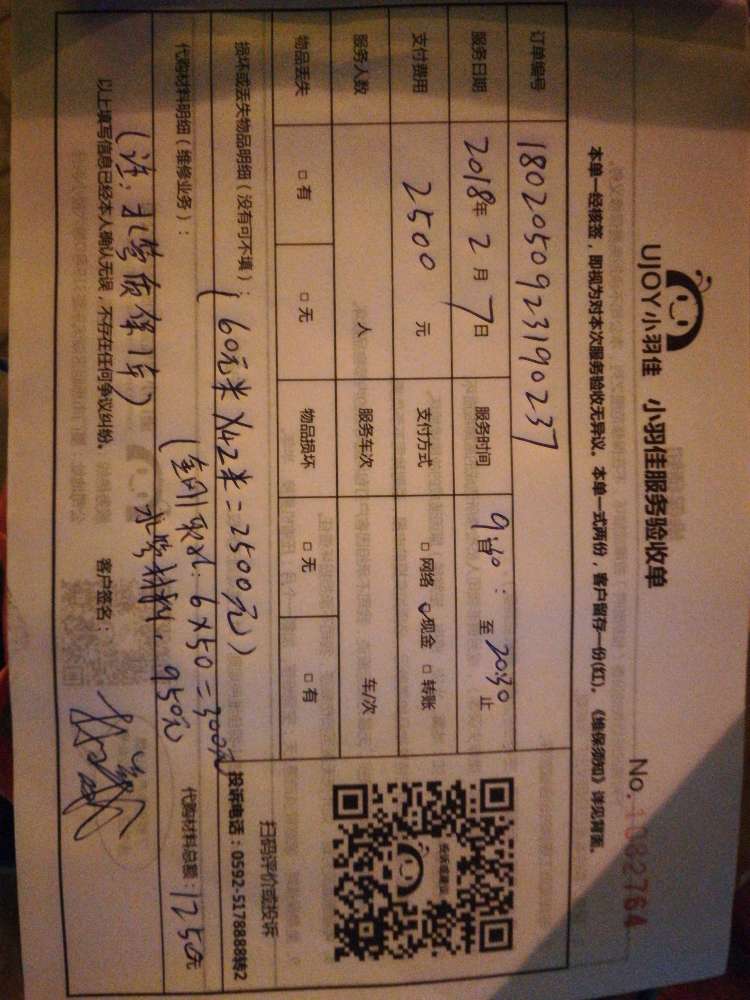 UJOY小羽佳 小羽佳服务验收单
No. 1082764
本单一经核签，即视为对本次服务验收无异议。本单一式两份，客户留存一份(红)。《维保须知》详见背面。
订单编号 1802050923190237
服务日期 2018年2月7日 服务时间 9:40 : 至 20:30 止
支付费用 2500 元 支付方式 □网络 ☑现金 □转账
服务人数 人 服务车次 车/次
物品丢失 □有 □无 物品损坏 □无 □有
扫码评价或投诉
投诉电话：0592-5178888转2
损坏或丢失物品明细（没有可不填）：
(60元米×42米=2500元)
代购材料明细（维修业务）：
6×50=300元
水管材料：950元
代购材料总额：1250元
(注：水管质保1年)
以上填写信息已经本人确认无误，不存在任何争议纠纷。 客户签名：